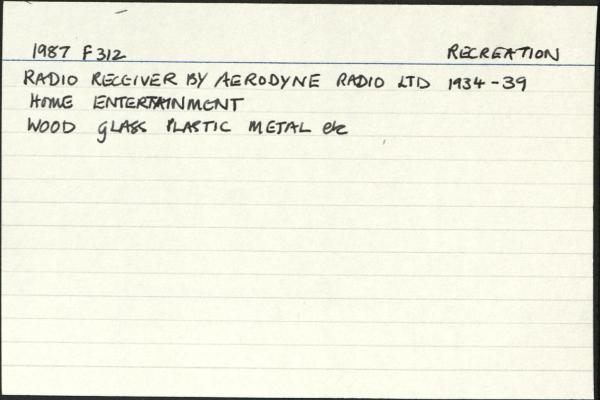 1987 F312 RECREATION
RADIO RECEIVER BY AERODYNE RADIO LTD 1934-39
HOME ENTERTAINMENT
WOOD GLASS PLASTIC METAL etc